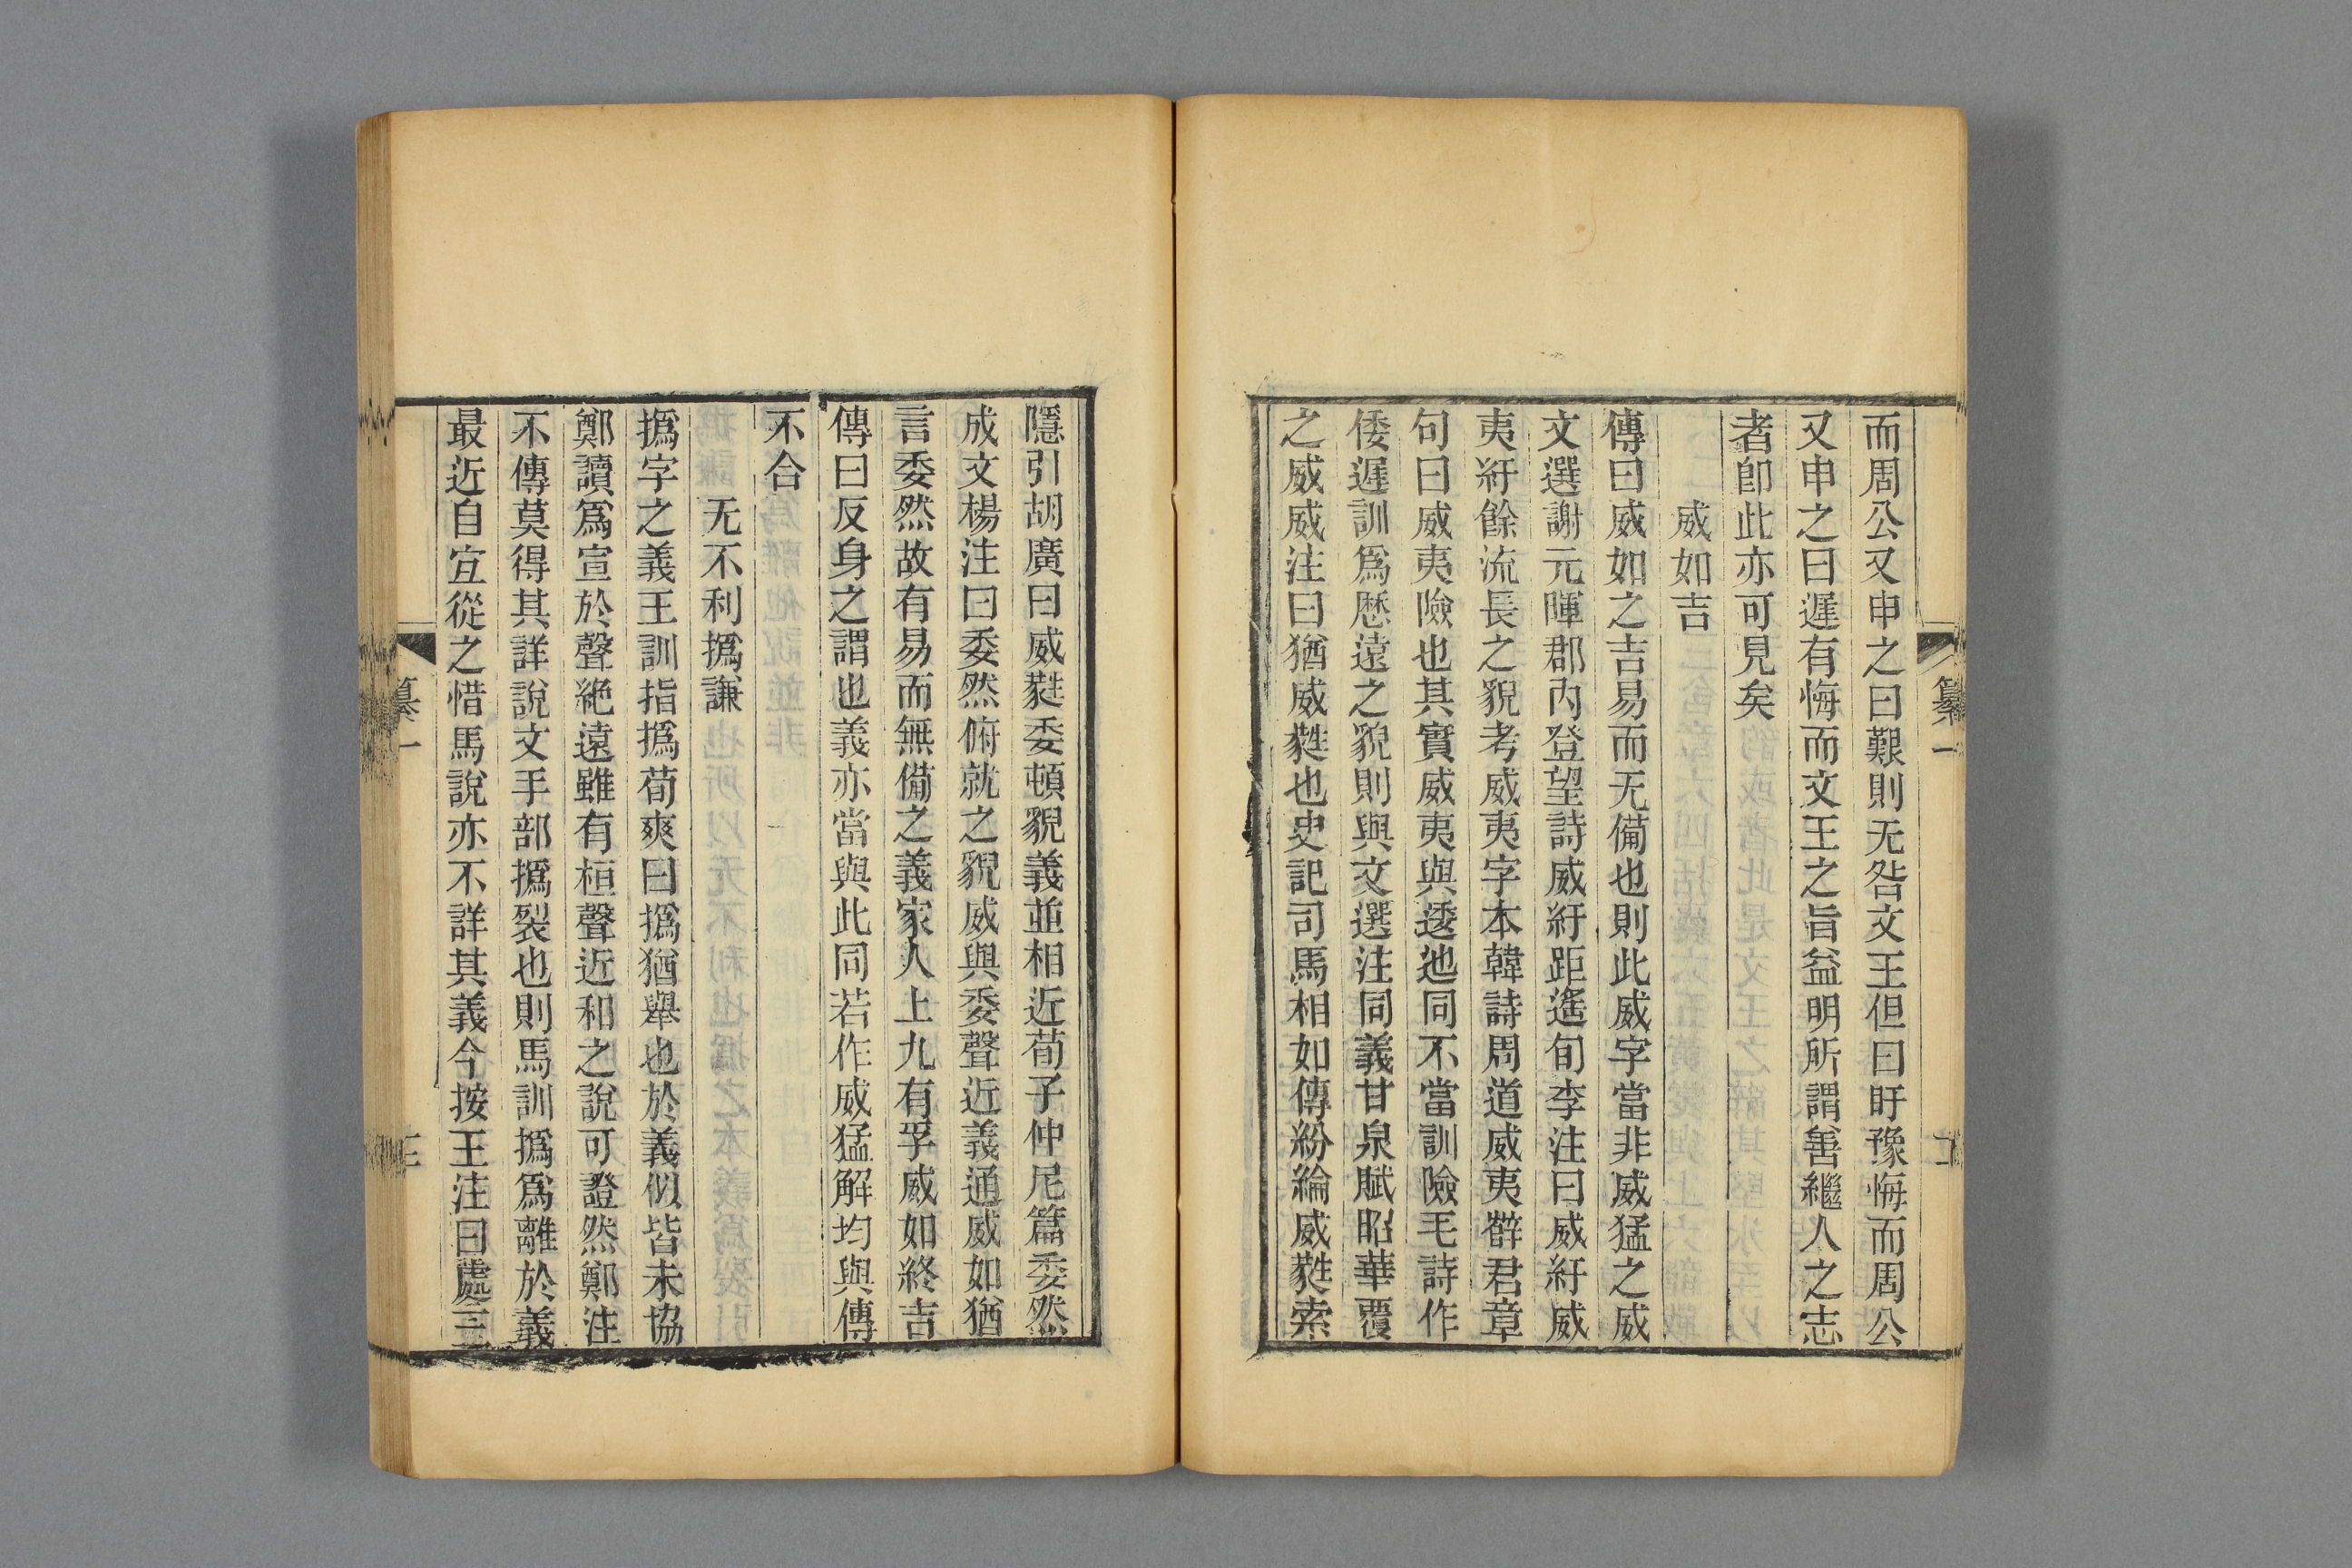 而周公又申之曰艱則无咎文王但曰盱豫悔而周公
又申之曰遲有悔而文王之旨益明所謂善繼人之志
者卽此亦可見矣
威如吉
傳曰威如之吉易而无備也則此威字當非威猛之威
文選謝元暉郡內登望詩威紆距遙甸李注曰威紆威
夷紆餘流長之貌考威夷字本韓詩周道威夷薛君章
句曰威夷險也其實威夷與逶迆同不當訓險毛詩作
倭遲訓爲歷遠之貌則與文選注同義甘泉賦昭華覆
之威威注曰猶威蕤也史記司馬相如傳紛綸威蕤索
隱引胡廣曰威蕤委頓貌義並相近荀子仲尼篇委然
成文楊注曰委然俯就之貌威與委聲近義通威如猶
言委然故有易而無備之義家人上九有孚威如終吉
傳曰反身之謂也義亦當與此同若作威猛解均與傳
不合
无不利撝謙
撝字之義王訓指撝荀爽曰撝猶舉也於義似皆未協
鄭讀爲宣於聲絶遠雖有桓聲近和之說可證然鄭注
不傳莫得其詳說文手部撝裂也則馬訓撝爲離於義
最近自宜從之惜馬說亦不詳其義今按王注曰處三
纂一
纂一